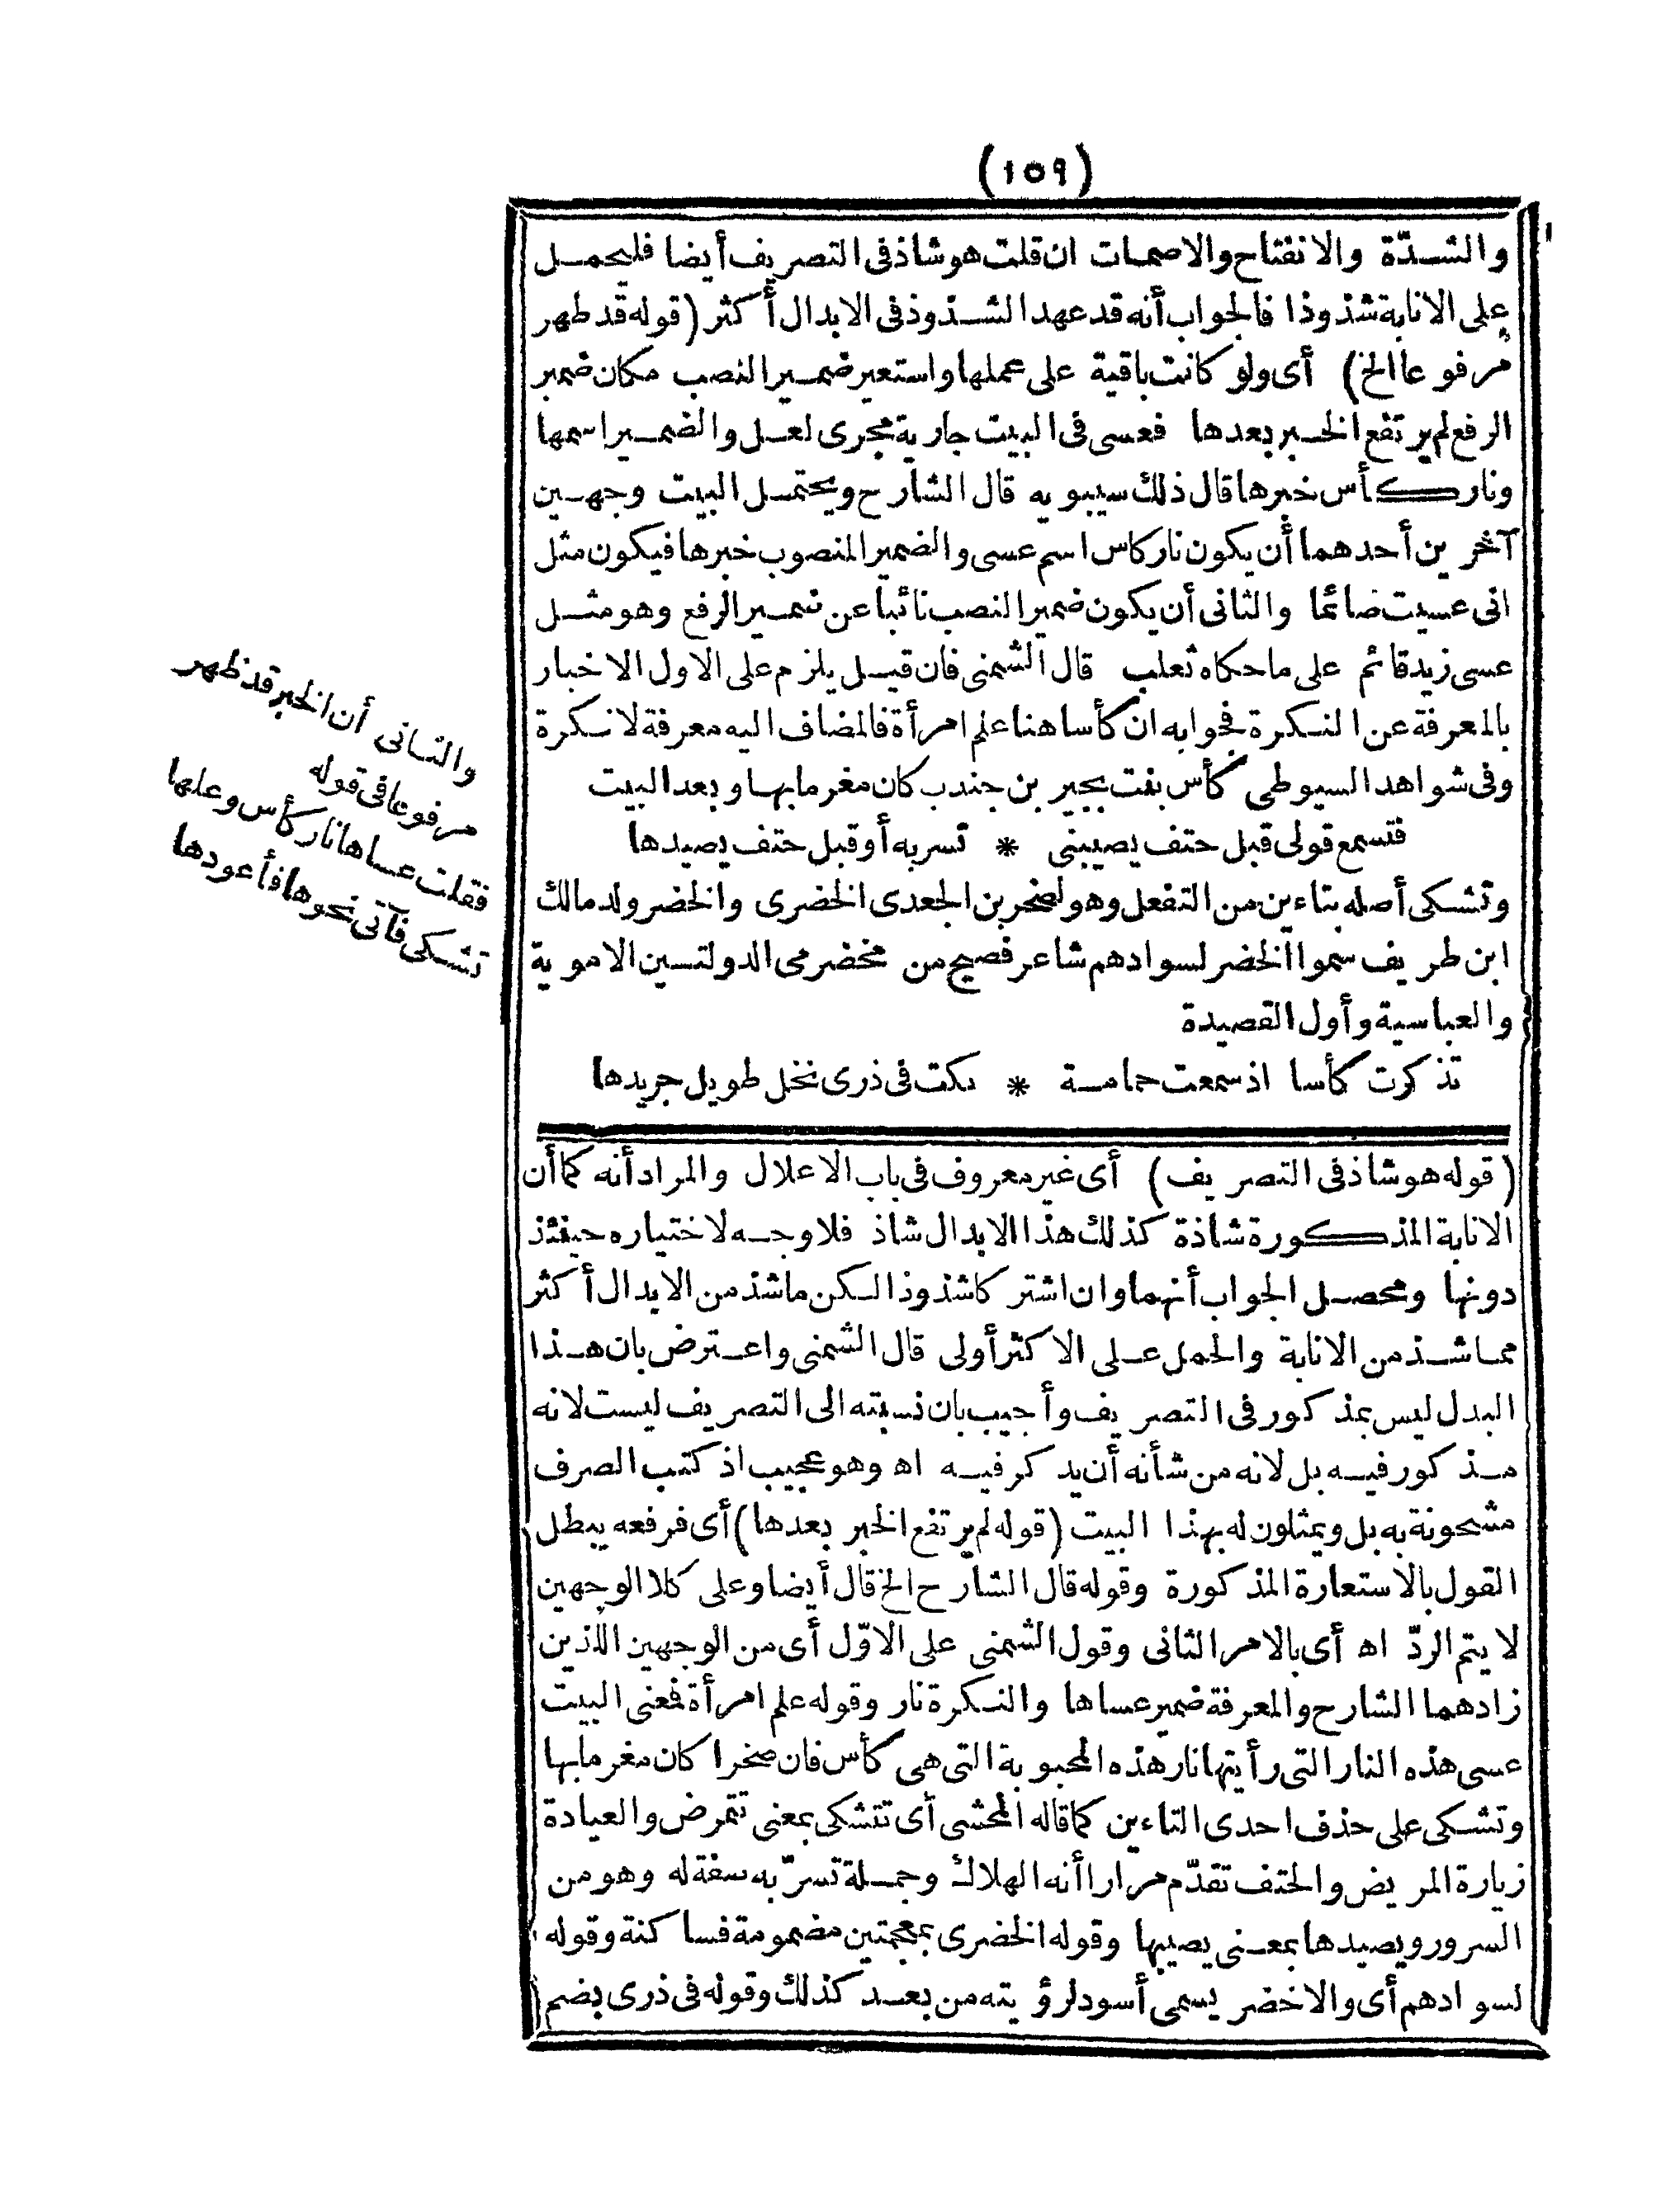 (١٥٩)
والشدّة والانفتاح والاصمات ان قلت هو شاذ فى التصريف أيضا فليحمل
على الانابة شذوذا فالجواب أنه قد عهد الشذوذ فى الابدال أكثر (قوله قد ظهر
مرفوعا الخ) أى ولو كانت باقية على عملها واستعير ضمير النصب مكان ضمير
الرفع لم يرتفع الخبر بعدها فعسى فى البيت جارية مجرى لعل والضمير اسمها
ونار كأس خبرها قال ذلك سيبويه قال الشارح ويحتمل البيت وجهين
آخرين أحدهما أن يكون نار كاس اسم عسى والضمير المنصوب خبرها فيكون مثل
انى عسيت صائما والثانى أن يكون ضمير النصب نائبا عن ضمير الرفع وهو مثل
عسى زيد قائم على ما حكاه ثعلب قال الشمنى فان قيل يلزم على الاول الاخبار
بالمعرفة عن النكرة فجوابه ان كأسا هنا علم امرأة فالمضاف اليه معرفة لا نكرة
وفى شواهد السيوطى كأس بنت بجير بن جندب كان مغرما بها وبعد البيت
فتسمع قولى قبل حتف يصيبنى * تسر به أو قبل حتف يصيدها
وتشكى أصله بتاءين من التفعل وهو لصخر بن الجعدى الخضرى والخضر ولد مالك
ابن طريف سموا الخضر لسوادهم شاعر فصيح من مخضرمى الدولتين الاموية
والعباسية وأول القصيدة
تذكرت كأسا اذ سمعت حمامة * بكت فى ذرى نخل طويل جريدها
والثانى أن الخبر قد ظهر
مرفوعا فى قوله
فقلت عساها نار كأس وعلها
تشكى فآتى نحوها فأعودها
(قوله هو شاذ فى التصريف) أى غير معروف فى باب الاعلال والمراد أنه كما أن
الانابة المذكورة شاذة كذلك هذا الابدال شاذ فلا وجه لاختياره حينئذ
دونها ومحصل الجواب أنهما وان اشتركا شذوذا لكن ما شذ من الابدال أكثر
مما شذ من الانابة والحمل على الاكثر أولى قال الشمنى واعترض بان هذا
البدل ليس بمذكور فى التصريف وأجيب بان نسبته الى التصريف ليست لانه
مذكور فيه بل لانه من شأنه أن يذكر فيه اه وهو عجيب اذ كتب الصرف
مشحونة به بل ويمثلون له بهذا البيت (قوله لم يرتفع الخبر بعدها) أى فرفعه يبطل
القول بالاستعارة المذكورة وقوله قال الشارح الخ قال أيضا وعلى كلا الوجهين
لا يتم الردّ اه أى بالامر الثانى وقول الشمنى على الاوّل أى من الوجهين اللذين
زادهما الشارح والمعرفة ضمير عساها والنكرة نار وقوله علم امرأة فمعنى البيت
عسى هذه النار التى رأيتها نار هذه المحبوبة التى هى كأس فان صخرا كان مغرما بها
وتشكى على حذف احدى التاءين كما قاله المحشى أى تتشكى بمعنى تتمرض والعيادة
زيارة المريض والحتف تقدّم مرارا أنه الهلاك وجملة تسرّ به صفة له وهو من
السرور ويصيدها بمعنى يصيبها وقوله الخضرى بمعجمتين مضمومة فساكنة وقوله
لسوادهم أى والاخضر يسمى أسود لرؤيته من بعد كذلك وقوله فى ذرى بضم